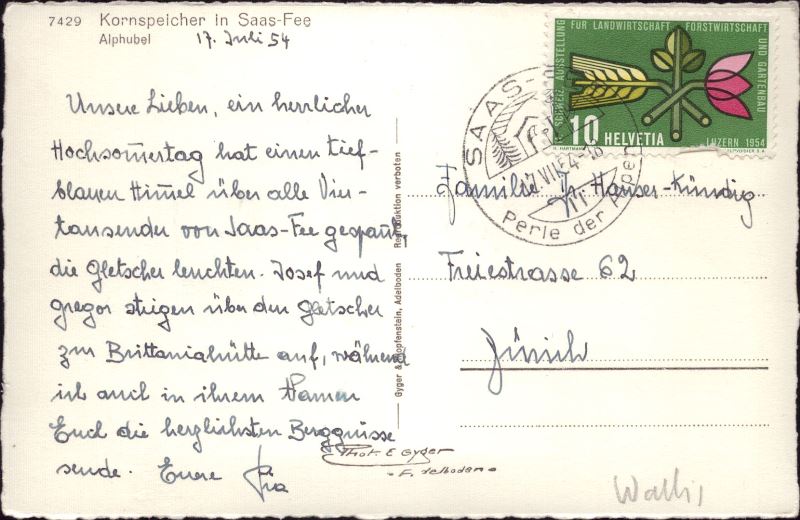 7429 Kornspeicher in Saas-Fee
Alphubel
17. Juli 54
Unsere Lieben, ein herrlicher
Hochsomertag hat einen tief-
blauen Himel über alle Vier-
tausender von Saas-Fee gespannt,
die Gletscher leuchten. Josef und
Gregor steigen über den Gletscher
zur Brittaniahütte auf, während
ich auch in ihrem Namen
Euch die herzlichsten Berggrüsse
sende. Eure Pia
Phot. E Gyger
- Adelboden -
Gyger & Klopfenstein, Adelboden Reproduktion verboten
SCHWEIZ. AUSSTELLUNG FÜR LANDWIRTSCHAFT FORSTWIRTSCHAFT UND GARTENBAU
LUZERN 1954
10 HELVETIA
SAAS-
17.VII.54-18
Perle der Alpen
Familie Hauser-Kündig
Freiestrasse 62
Zürich
Wallis